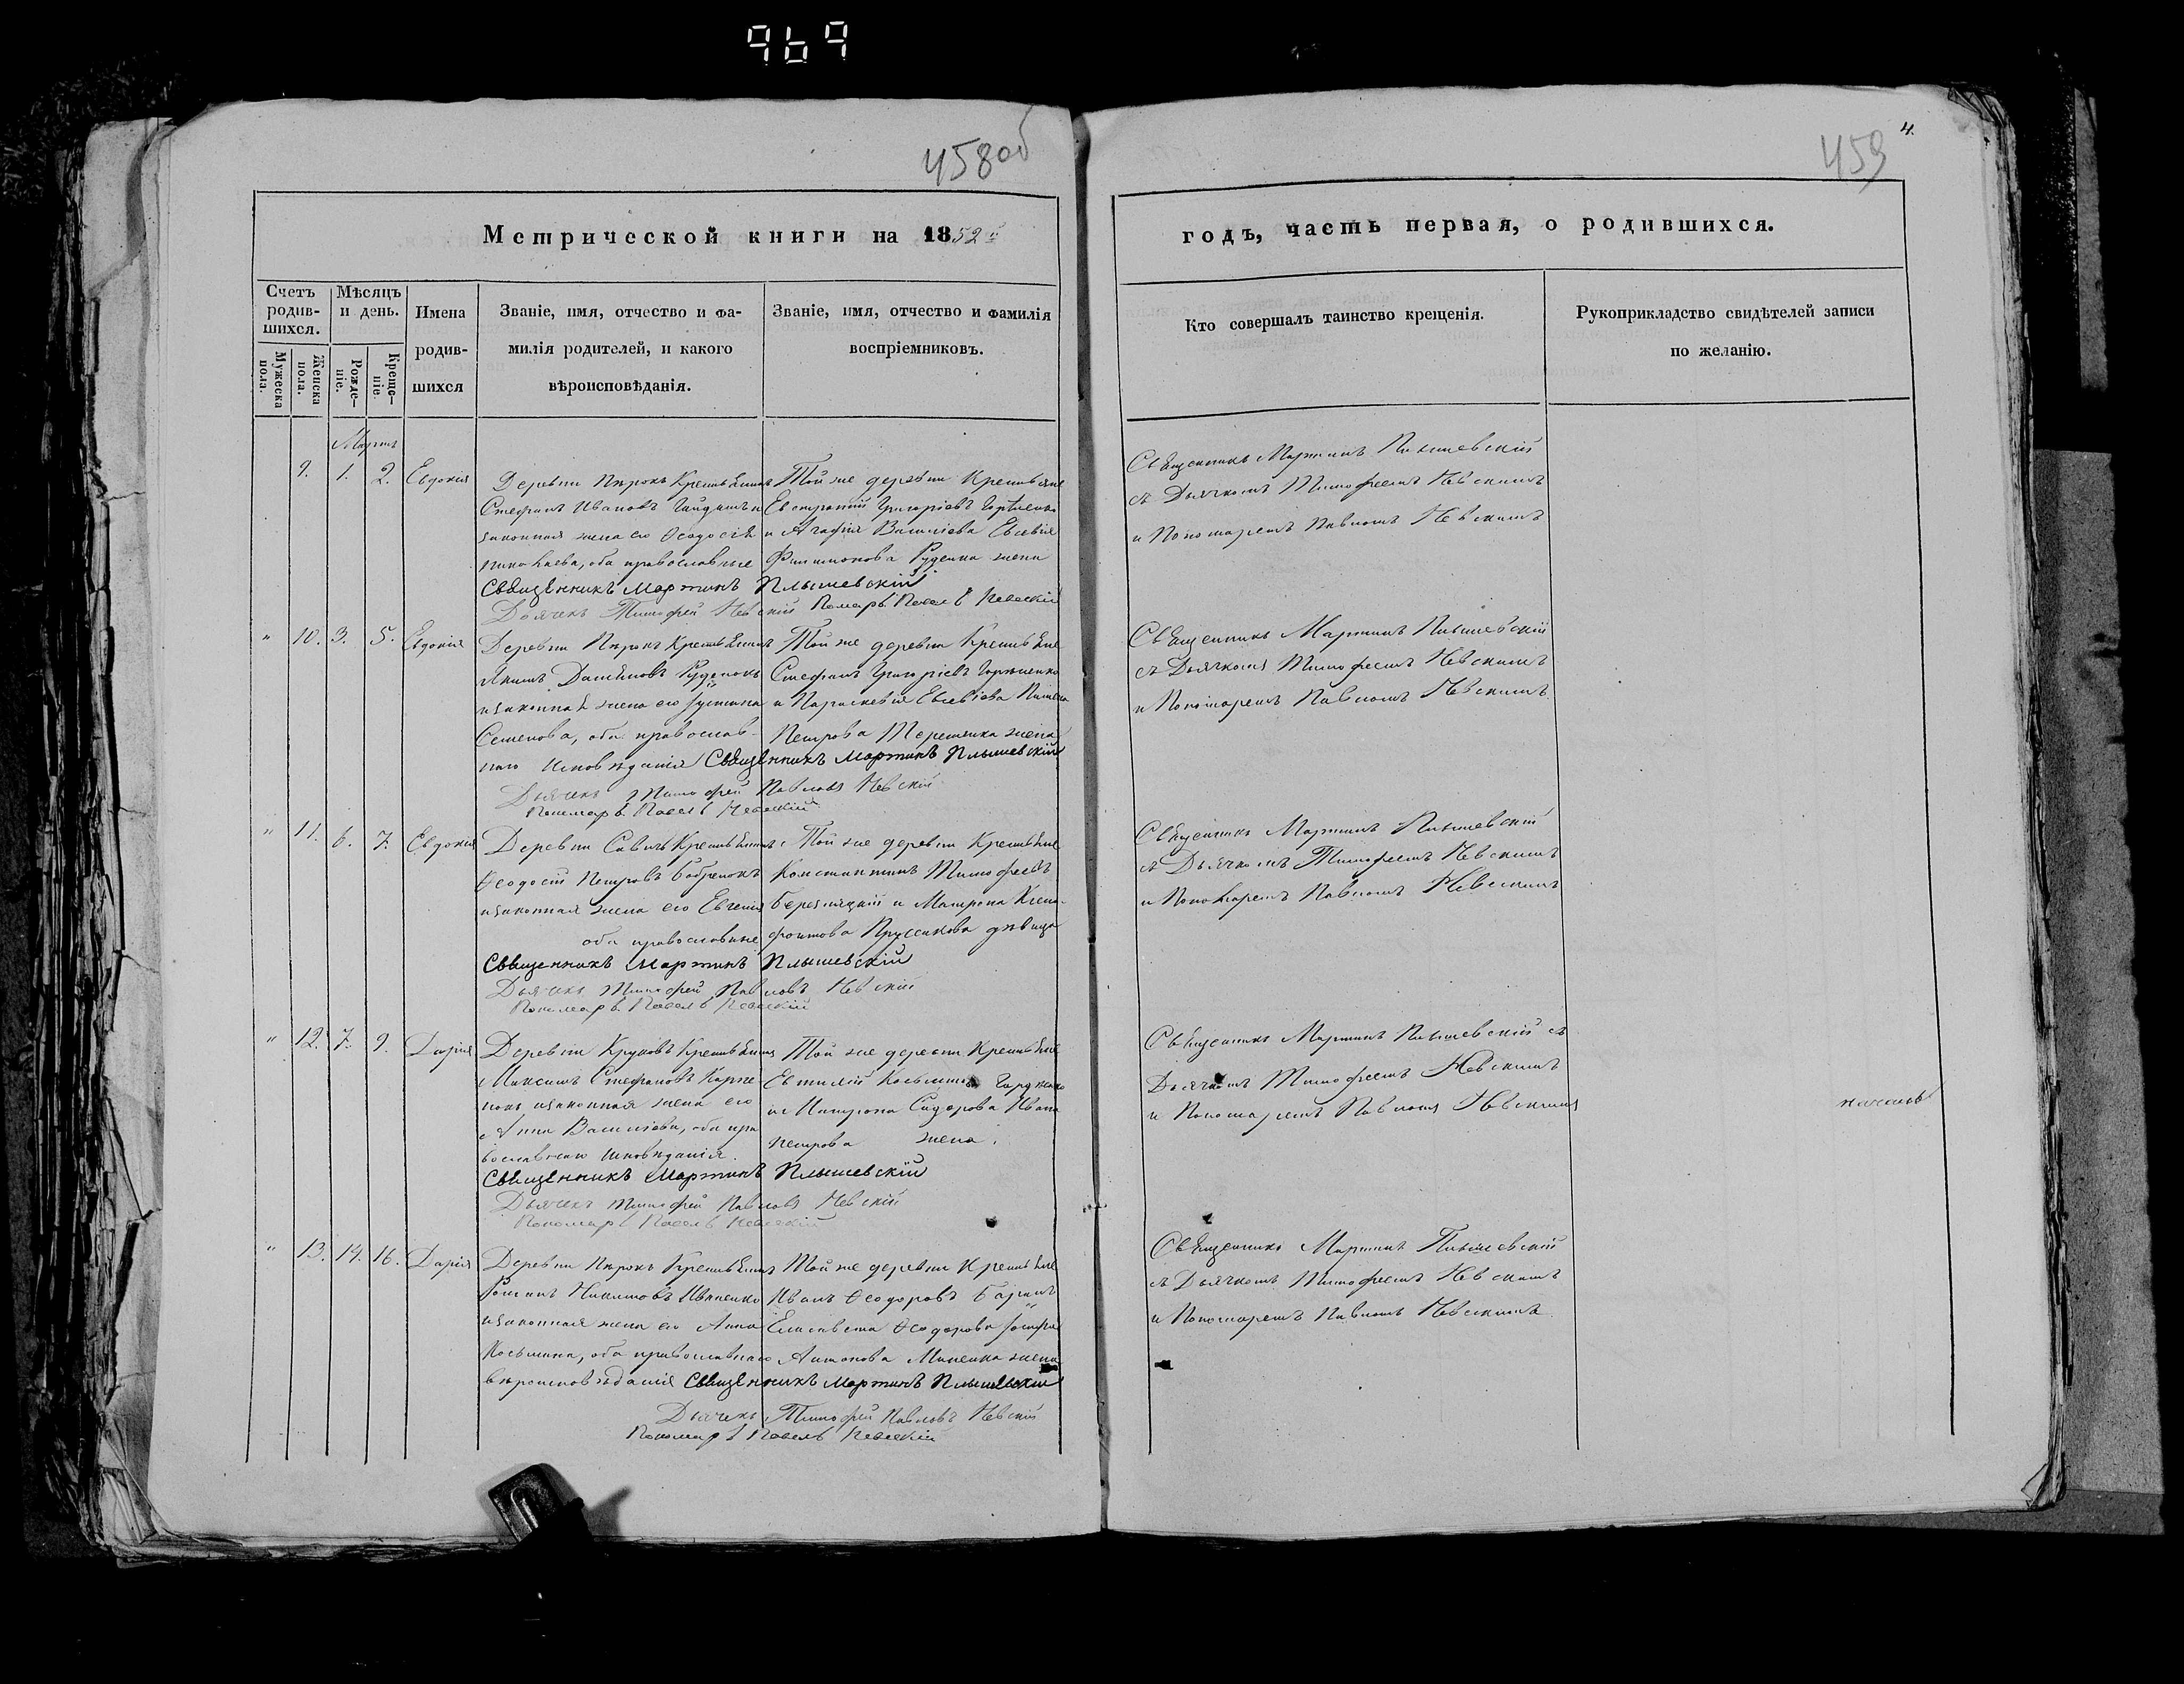 969
458об
459
4.
Метрической книги на 1852й
годъ, часть первая, о родившихся.
Счетъ родив-шихся.
Мужеска пола.
Женска пола.
Мѣсяцъ и день.
Рожде-ніе.
Креще-ніе.
Имена родив-шихся
Званіе, имя, отчество и фа-
милія родителей, и какого
вѣроисповѣданія.
Званіе, имя, отчество и фамилія
воспріемниковъ.
Кто совершалъ таинство крещенія.
Рукоприкладство свидѣтелей записи
по желанію.
Мартъ
9. 1. 2. Евдокія
Деревни Крестьянинъ
Стефанъ Ивановъ
законная жена его Ѳеодосія
Николаева, оба православные
Той же деревни Крестьяне
Евстратій Григоріевъ
и Агафія Василіева Евсевія
Филимонова Руденка жена
Священникъ Мартинъ Плышевскій
Дьячекъ Тимофей Невскій Помарь Павелъ Невскій
Священникъ Мартинъ Плышевскій
съ Дьячкомъ Тимофеемъ Невскимъ
и Пономаремъ Павломъ Невскимъ
" 10. 3. 5. Евдокія
Деревни Крестьянинъ
Якимъ Даміановъ Руденокъ
и законная жена его Іустина
Семенова, оба православ-
наго исповѣданія
Той же деревни Крестьяне
Стефанъ Григоріевъ
и Параскевія Евсевіева
Петрова Терешенка жена
Священникъ Мартинъ Плышевскій
Дьячекъ Тимофей Павловъ Невскій
Пономарь Павелъ Невскій
Священникъ Мартинъ Плышевскій
съ Дьячкомъ Тимофеемъ Невскимъ
и Пономаремъ Павломъ Невскимъ
" 11. 6. 7. Евдокія
Деревни Савичъ Крестьянинъ
Ѳеодосій Петровъ Бобренокъ
и законная жена его Евгенія
оба православные
Той же деревни Крестьяне
Константинъ Тимофеевъ
Березняцкій и Матрона Ксено-
фонтова Пруссакова дѣвица
Священникъ Мартинъ Плышевскій
Дьячекъ Тимофей Павловъ Невскій
Пономарь Павелъ Невскій
Священникъ Мартинъ Плышевскій
съ Дьячкомъ Тимофеемъ Невскимъ
и Пономаремъ Павломъ Невскимъ
" 12. 7. 9. Дарія
Деревни Круковъ Крестьянинъ
Максимъ Стефановъ Карпе
нокъ и законная жена его
Анна Василіева, оба пра
вославнаго исповѣданія.
Той же деревни Крестьяне
Евтихій Косьминъ
и Матрона Сидорова Ивана
Петрова жена.
Священникъ Мартинъ Плышевскій
Дьячекъ Тимофей Павловъ Невскій
Пономарь Павелъ Невскій
Священникъ Мартинъ Плышевскій съ
Дьячкомъ Тимофеемъ Невскимъ
и Пономаремъ Павломъ Невскимъ
" 13. 14. 16. Дарія
Деревни Крестьянинъ
Романъ Никитовъ Иваненко
и законная жена его Анна
Косьмина, оба православнаго
вѣроисповѣданія
Той же деревни Крестьяне
Иванъ Ѳеодоровъ
Елисавета Ѳеодорова
Антонова Миненка жена
Священникъ Мартинъ Плышевскій
Дьячекъ Тимофей Павловъ Невскій
Пономарь Павелъ Невскій
Священникъ Мартинъ Плышевскій
съ Дьячкомъ Тимофеемъ Невскимъ
и Пономаремъ Павломъ Невскимъ